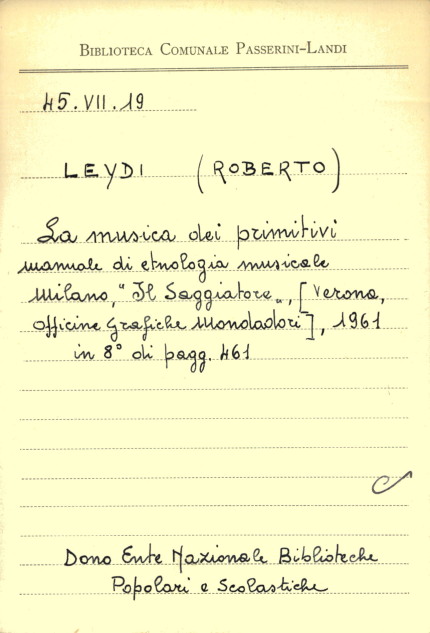 BIBLIOTECA COMUNALE PASSERINI-LANDI
45.VII.19
LEYDI (ROBERTO)
La musica dei primitivi
manuale di etnologia musicale
Milano, "Il Saggiatore", [Verona,
Officine Grafiche Mondadori], 1961
in 8° di pagg. 461
Dono Ente Nazionale Biblioteche
Popolari e Scolastiche